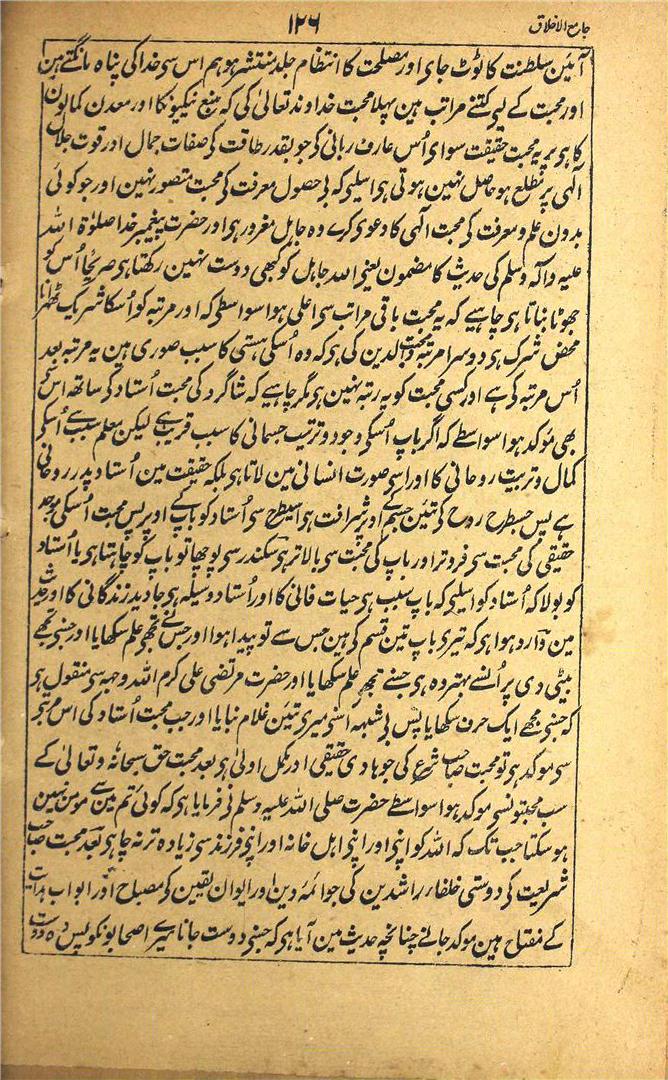 جامع الاخلاق
۱۲۶
آئین سلطنت کا ٹوٹ جای اور مصلحت کا انتظام جلد منتشر ہو ہم اس سی خدا کی پناہ مانگتے ہین
اور محبت کے لیی کتنے مراتب ہین پہلا محبت خداوند تعالیٰ کی کہ منبع نیکیونکا اور معدن کمالون
کا ہی پر یہ محبت حقیقت سوای اُس عارف ربانی کی جو بقدر طاقت کی صفات جمال اور قوت جلال
الٰہی پر مطلع ہو حاصل نہین ہوتی ہی اسلیی کہ بی حصول معرفت کی محبت متصور نہین اور جو کوئی
بدون علم و معرفت کی محبت الٰہی کا دعوی کری وہ جاہل مغرور ہی اور حضرت پیغمبر خدا صلوٰۃ اللہ
علیہ وآلہ وسلم کی حدیث کا مضمون یعنی اللہ جاہل کو کبھی دوست نہین رکھتا ہی صریحًا اُس کو
جھوٹا بناتا ہی چاہیے کہ یہ محبت باقی مراتب سی اعلی ہو اسواسطی کہ اور مرتبہ کو اُسکا شریک ٹھہرانا
محض شرک ہی دوسرا مرتبہ محبت والدین کی ہی کہ وہ اُسکی ہستی کا سبب صوری ہین یہ مرتبہ بعد
اُس مرتبہ کی ہے اور کسی محبت کو یہ رتبہ نہین ہی مگر چاہیے کہ شاگرد کی محبت اُستاد کی ساتھ اس سی
بھی مؤکد ہو اسواسطے کہ اگر باپ اُسکی وجود و تربیت جسمانی کا سبب قریب ہے لیکن معلم سبب ہے اُسکی
کمال و تربیت روحانی کا اور اسی صورت انسانی مین لاتا ہی بلکہ حقیقت مین اُستاد پدر روحانی
ہے پس جسطرح روح کی تئین جسم کی اوپر شرافت ہی اسیطرح سی اُستاد کو باپ کے اوپر پس محبت اُسکی موجد
حقیقی کی محبت سی فروتر اور باپ کی محبت سی بالاتر ہی سکندر سی پوچھا تو باپ کو چاہتا ہی یا اُستاد
کو بولا کہ اُستاد کو اسلیی کہ باپ سبب ہی حیات فانی کا اور اُستاد وسیلہ ہی جاوید زندگانی کا اور حدیث
مین وارد ہوا ہی کہ تیری باپ تین قسم کی ہین جس سے تو پیدا ہوا اور جس نے تجھی علم سکھایا اور جسنی تجھے
بیٹی دی پر اُنسے بہتر وہ ہی جسنے تجھے علم سکھایا اور حضرت مرتضی علی کرم اللہ وجہہ سی منقول ہی
کہ جسنی مجھے ایک حرف سکھایا پس بی شبہہ اُسنی میری تئین غلام بنایا اور جب محبت اُستاد کی اس مرتبہ
سی مؤکد ہی تو محبت صاحب شرع کی جو ہادی حقیقی اور مکمل اولیٰ ہی بعد محبت حق سبحانہ وتعالیٰ کے
سب محبتونسی مؤکد ہو اسواسطے حضرت صلی اللہ علیہ وسلم نی فرمایا ہی کہ کوئی تم مین سے مومن نہین
ہو سکتا جب تک کہ اللہ کو اپنی اور اپنی اہل خانہ اور اپنی فرزند سی زیادہ تر نہ چاہی بعد محبت صاحب
شریعت کی دوستی خلفاء راشدین کی جو ائمۂ دین اور ایوان یقین کی مصباح اور ابواب ہدایت
کے مفتاح ہین مؤکد جانے چنانچہ حدیث مین آیا ہی کہ جسنی دوست جانا میرے اصحابونکو پس وہ دوست